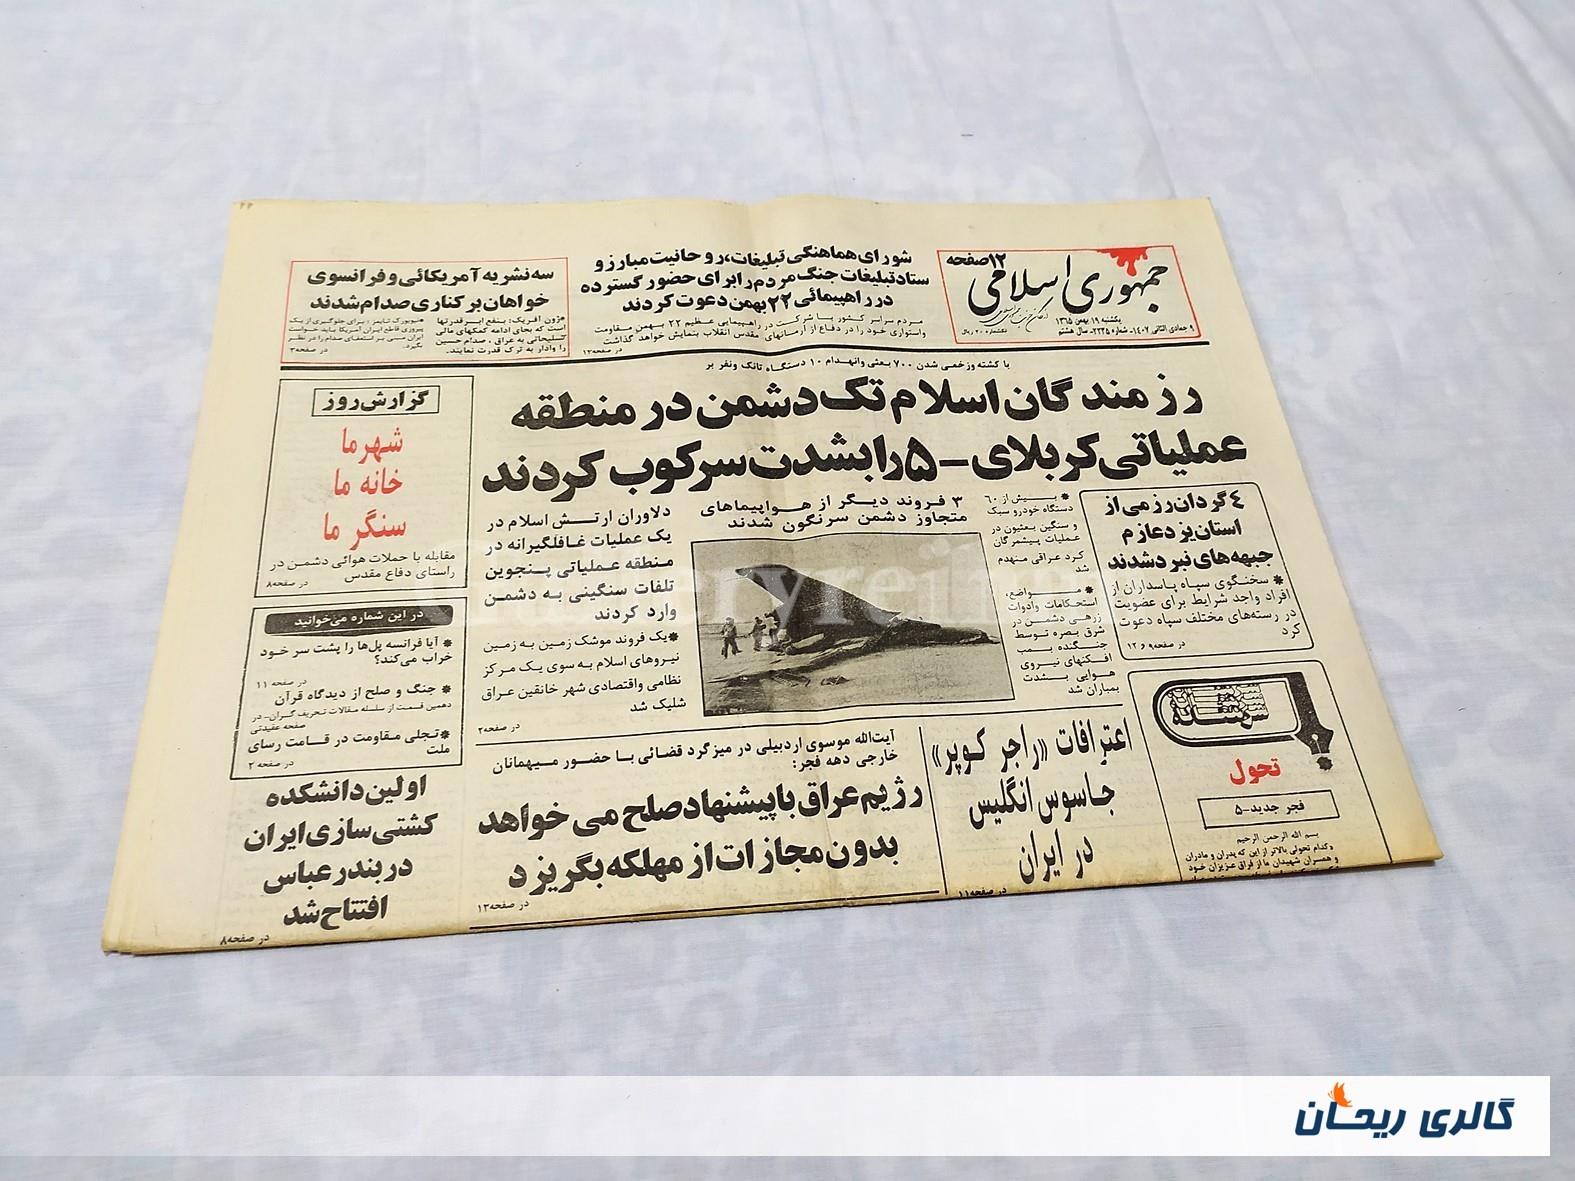 جمهوری اسلامی
۱۲صفحه
یکشنبه ۱۹ بهمن ۱۳۶۵
۹ جمادی الثانی ۱۴۰۷- شماره ۲۲۳۵- سال هشتم
تکشماره ۲۰ ریال
شورای هماهنگی تبلیغات، روحانیت مبارز و
ستاد تبلیغات جنگ مردم را برای حضور گسترده
در راهپیمائی ۲۲ بهمن دعوت کردند
مردم سراسر کشور با شرکت در راهپیمایی عظیم ۲۲ بهمن مقاومت
واستواری خود را در دفاع از آرمانهای مقدس انقلاب بنمایش خواهد گذاشت
در صفحه۱۲
سه نشریه آمریکائی و فرانسوی
خواهان برکناری صدام شدند
*ژون آفریک: بنفع ابرقدرتها
است که بجای ادامه کمکهای مالی
تسلیحاتی به عراق، صدام حسین
را وادار به ترک قدرت نمایند.
*نیویورک تایمز: برای جلوگیری از یک
پیروزی قاطع ایران آمریکا باید خواست
ایران مبنی بر استعفای صدام را در نظر
بگیرد.
در صفحه۳
با کشته وزخمی شدن ۷۰۰ بعثی وانهدام ۱۰ دستگاه تانک ونفر بر
رزمندگان اسلام تک دشمن در منطقه
عملیاتی کربلای -۵ را بشدت سرکوب کردند
۴ گردان رزمی از
استان یزد عازم
جبهه های نبرد شدند
* سخنگوی سپاه پاسداران از
افراد واجد شرایط برای عضویت
در رسته‌های مختلف سپاه دعوت
کرد
در صفحه۹ و ۱۲
* بیش از ۶۰
دستگاه خودرو سبک
و سنگین بعثیون در
عملیات پیشمرگان
کرد عراقی منهدم
شد
* مواضع،
استحکامات وادوات
زرهی دشمن در
شرق بصره توسط
جنگنده بمب
افکنهای نیروی
هوایی بشدت
بمباران شد
۳ فروند دیگر از هواپیماهای
متجاوز دشمن سرنگون شدند
دلاوران ارتش اسلام در
یک عملیات غافلگیرانه در
منطقه عملیاتی پنجوین
تلفات سنگینی به دشمن
وارد کردند
*یک فروند موشک زمین به زمین
نیروهای اسلام به سوی یک مرکز
نظامی واقتصادی شهر خانقین عراق
شلیک شد
در صفحه۲
گزارش روز
شهر ما
خانه ما
سنگر ما
مقابله با حملات هوائی دشمن در
راستای دفاع مقدس
در صفحه۸
در این شماره می‌خوانید
* آیا فرانسه پل‌ها را پشت سر خود
خراب می‌کند؟
در صفحه ۱۱
* جنگ و صلح از دیدگاه قرآن
دهمین قسمت از سلسله مقالات تحریف گران- در
صفحه عقیدتی
*تجلی مقاومت در قامت رسای
ملت
در صفحه ۲
اولین دانشکده
کشتی سازی ایران
در بندر عباس
افتتاح شد
در صفحه۸
آیت‌الله موسوی اردبیلی در میزگرد قضائی با حضور میهمانان
خارجی دهه فجر:
رژیم عراق با پیشنهاد صلح می خواهد
بدون مجازات از مهلکه بگریزد
در صفحه۱۲
اعترافات «راجر کوپر»
جاسوس انگلیس
در ایران
در صفحه۱۱
سرمقاله
تحول
فجر جدید-۵
بسم الله الرحمن الرحیم
وکدام تحولی بالاتر از این که پدران و مادران
و همسران شهیدان ما از فراق عزیزان خود
گالری ریحان